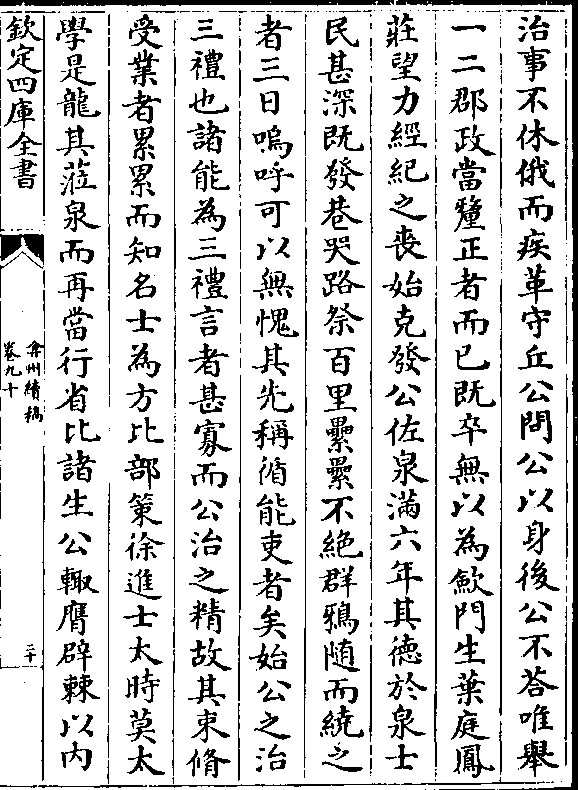 治事不休俄而疾革守丘公問公以身後公不荅唯舉
一二郡政當釐正者而已既卒無以為歛門生葉庭鳳
莊望力經紀之喪始克發公佐泉滿六年其德於泉士
民甚深既發巷哭路祭百里纍纍不絕群鴉随而繞之
者三日嗚呼可以無愧其先稱循能吏者矣始公之治
三禮也諸能為三禮言者甚寡而公治之精故其束脩
受業者累累而知名士為方比部䇿徐進士太時莫太
學是龍其蒞泉而再當行省比諸生公輙膺辟棘以内
欽定四庫全書
弇州續稿
卷九十
二十